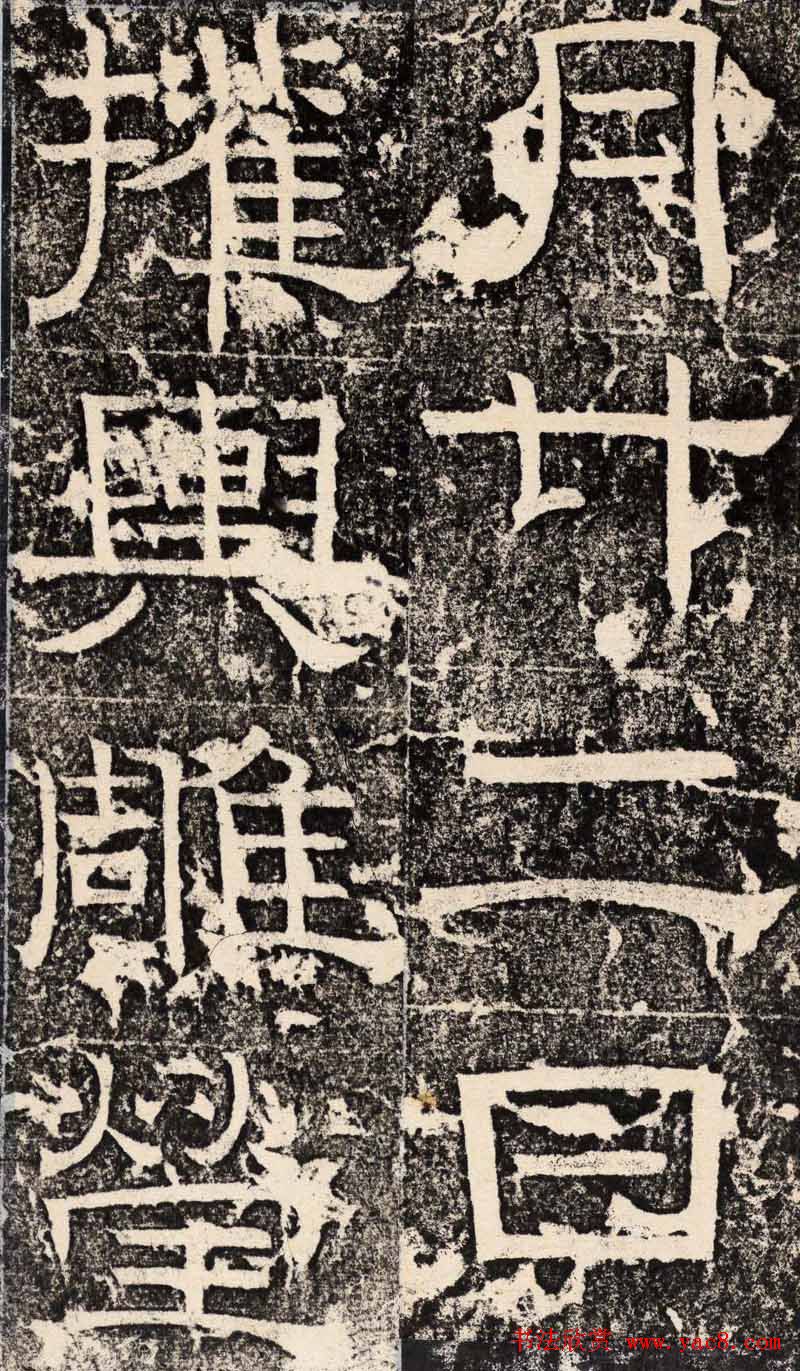 月廿二日
權輿雕瑩
书法欣赏 www.yac8.com